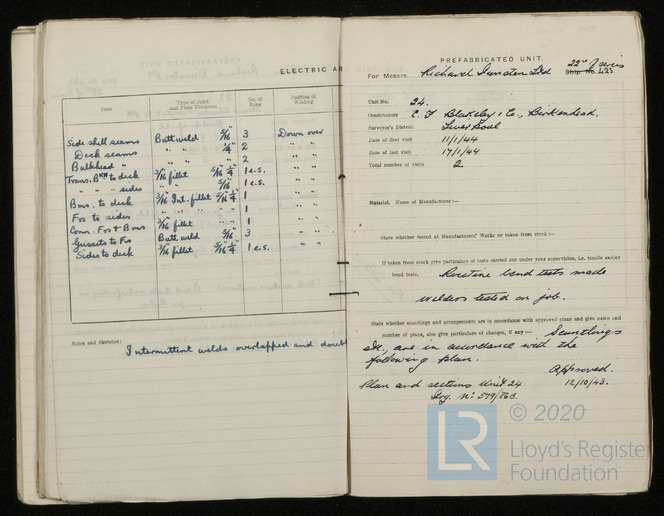 ELECTRIC AR
Item Type of Joint and Plate Thickness No. of Runs Position of Welding
Side shell seams Butt weld 5/16 3 Down over
Deck seams " " 1/4" 2 " "
Bulkhead " " " 2 " "
Trans. Bkh to deck 3/16 fillet 5/16 1/4" 1 e.s. " "
" " " sides " 5/16" 1 e.s. " "
Bms. to deck 3/16 Int. fillet 5/16 1/4" 1 " "
Frs to sides " " " " " 1 " "
Conn. Frs & Bms 3/16 fillet " " 1 " "
Gussets to Frs Butt weld 5/16" 3 " "
Sides to deck 3/16 fillet 5/16 1/4" 1 e.s. " "
Notes and Sketches:
Intermittent welds overlapped and doubl
PREFABRICATED UNIT.
For Messrs. Richard Dunston Ltd 22nd Series Ship No. 423
Unit No. 24.
Constructors E. F. Blakeley & Co., Birkenhead.
Surveyor's District Liverpool
Date of first visit 11/1/44
Date of last visit 17/1/44
Total number of visits 2
Material. Name of Manufacturer:—
State whether tested at Manufacturers' Works or taken from stock:—
If taken from stock give particulars of tests carried out under your supervision, i.e. tensile and/or
bend tests. Routine bend tests made
Welders tested on job.
State whether scantlings and arrangements are in accordance with approved plans and give name and
number of plans, also give particulars of changes, if any:— Scantlings
etc, are in accordance with the
following plan.
Approved.
Plan and sections Unit 24 12/10/43.
Drg. No. 579/863.
© 2020
LR
Lloyd's Register
Foundation